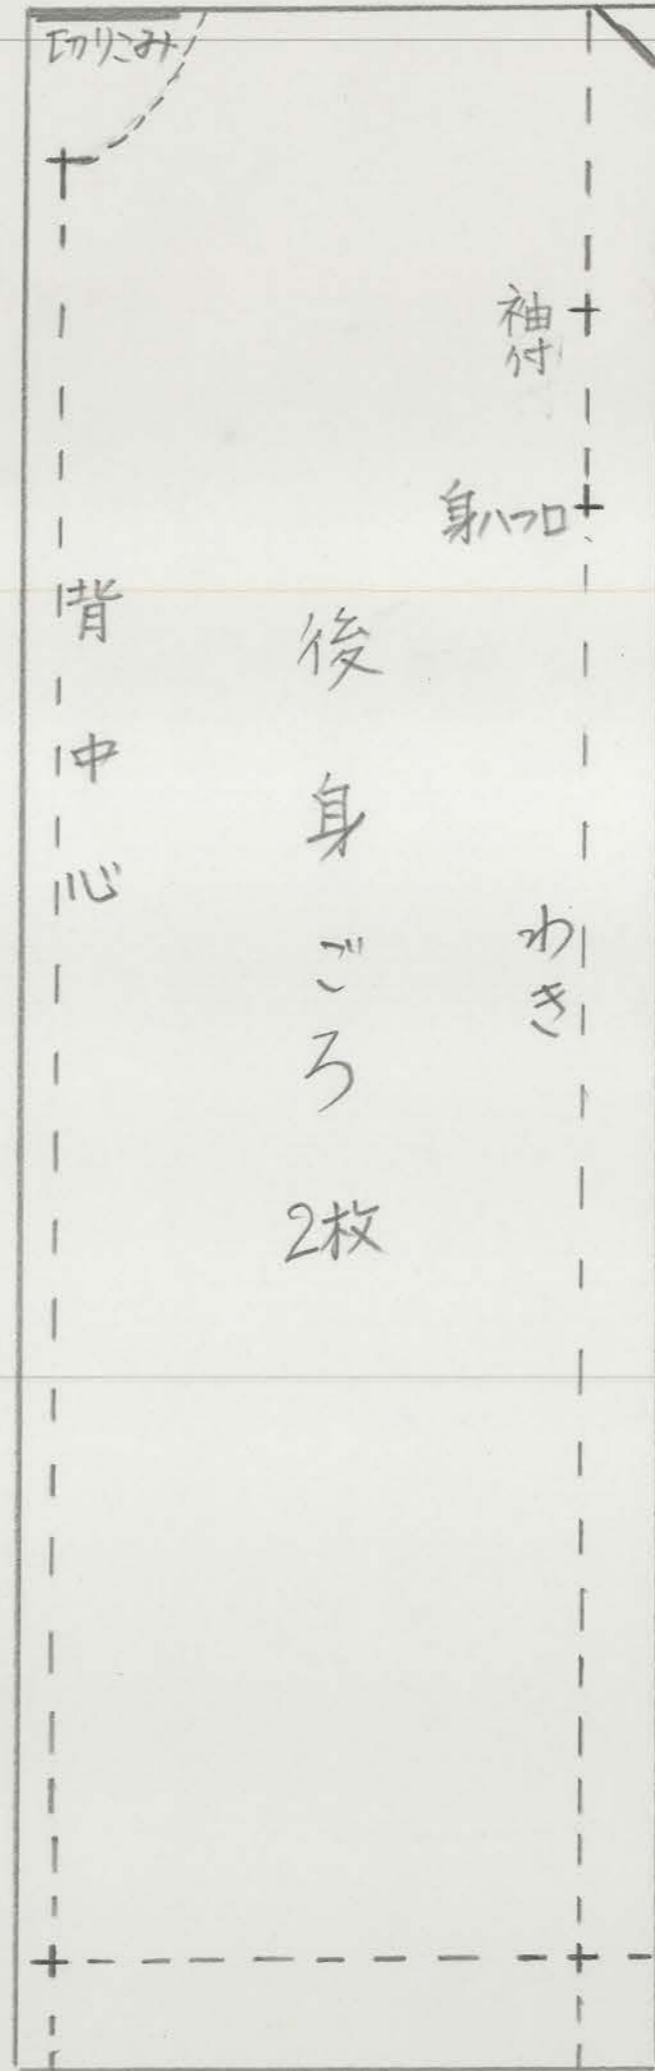 切りこみ
袖付
身八つ口
背中心
後身ごろ 2枚
わき